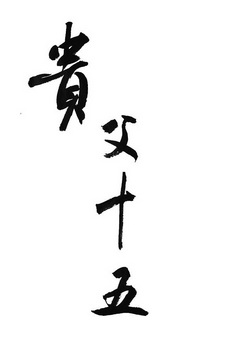 貴父十五